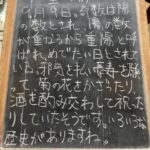 の数とされ、陽の数
が重なるから重陽と呼
ばれ、めでたい日とされて
いる。邪気を払い長寿を願
って、菊の花をかざったり、
酒を酌み交わして祝った
りしていたそうです。いろいろな
歴史がありますね。